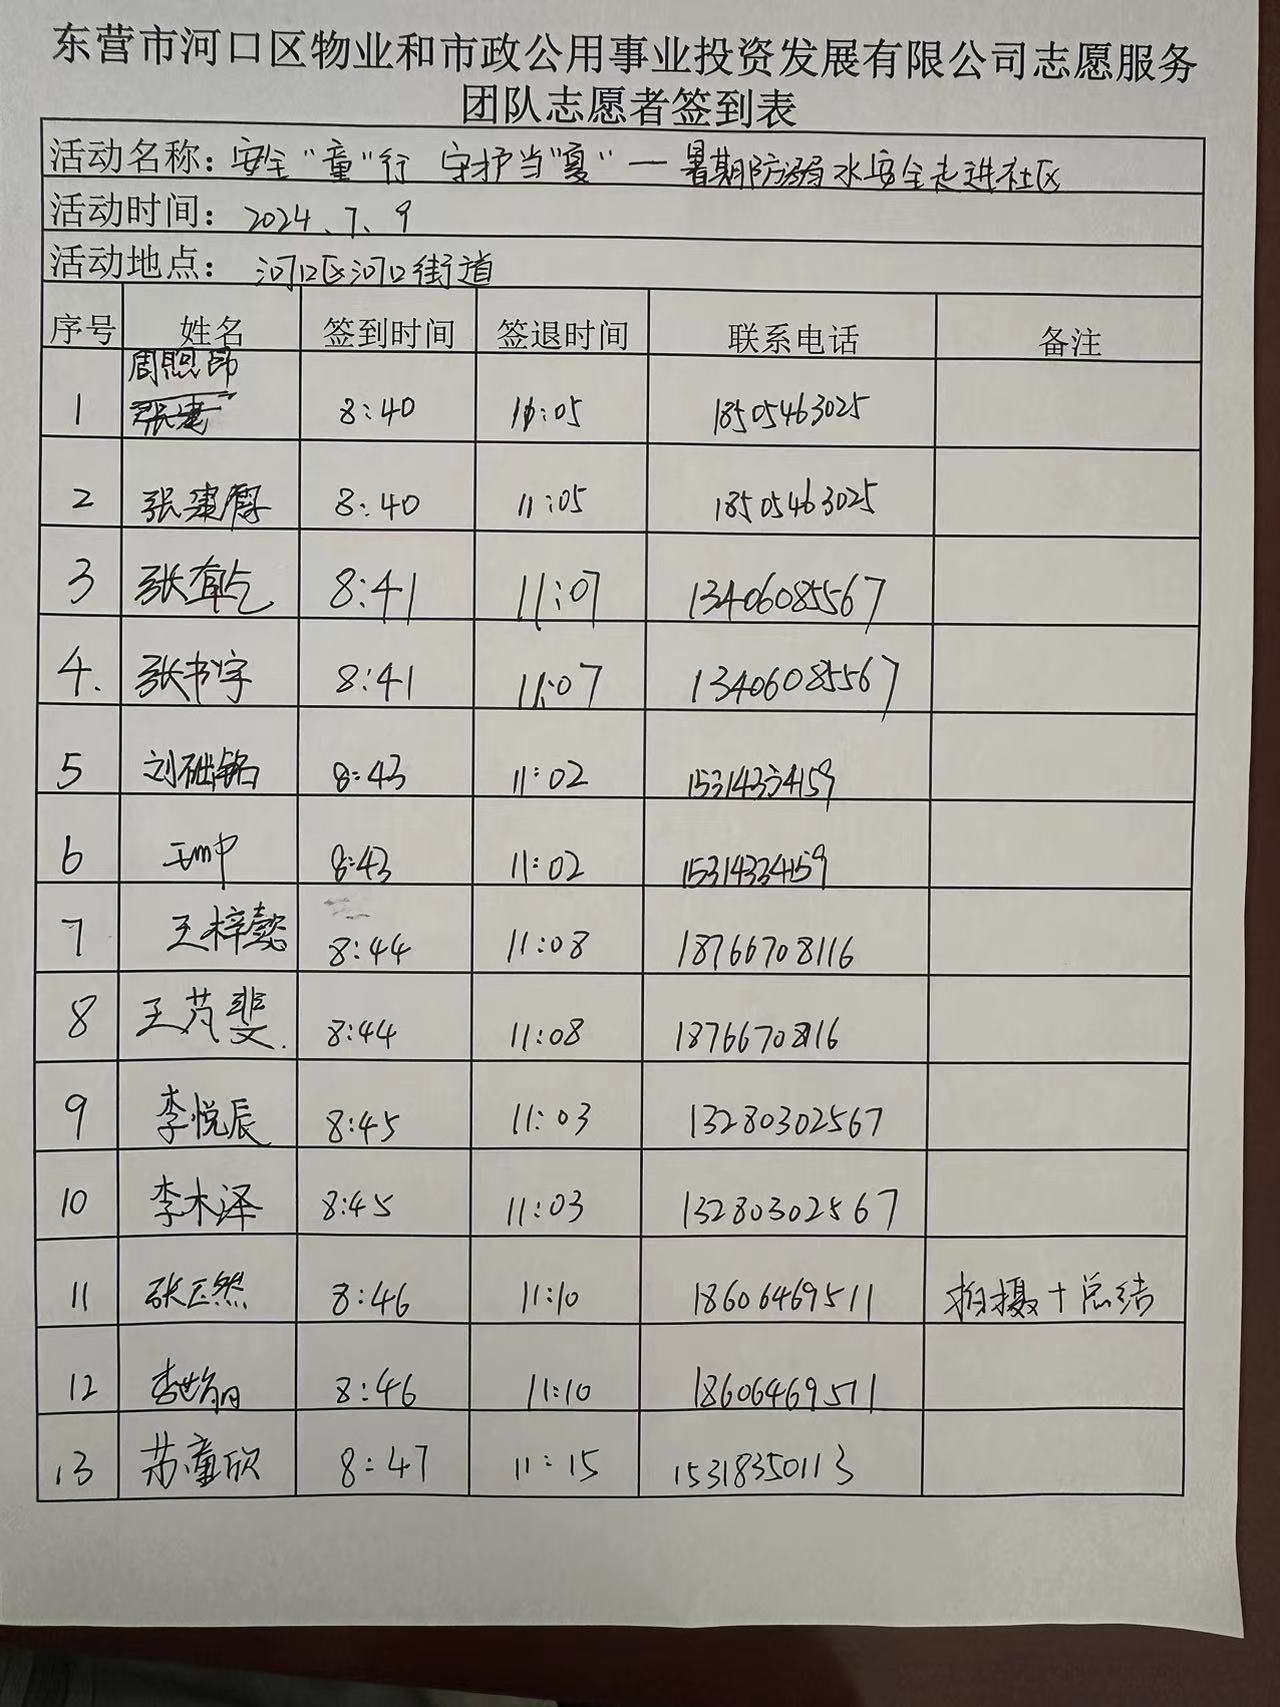 东营市河口区物业和市政公用事业投资发展有限公司志愿服务
团队志愿者签到表
活动名称：安全“童”行 守护当“夏”—暑期防溺水安全走进社区
活动时间：2024、7、9
活动地点：河口区河口街道
序号 姓名 签到时间 签退时间 联系电话 备注
周煦昂
1 8:40 11:05 18505463025
2 张建厚 8:40 11:05 18505463025
3 8:41 11:07 13406085567
4. 张书宇 8:41 11:07 13406085567
5 刘础铭 8:43 11:02 15314334159
6 8:43 11:02 15314334159
7 王梓懿 8:44 11:08 18766708116
8 王芃斐 8:44 11:08 18766708116
9 李悦辰 8:45 11:03 13280302567
10 李木泽 8:45 11:03 13280302567
11 张正然 8:46 11:10 18606469511 拍摄+总结
12 8:46 11:10 18606469511
13 苏童欣 8:47 11:15 15318350113